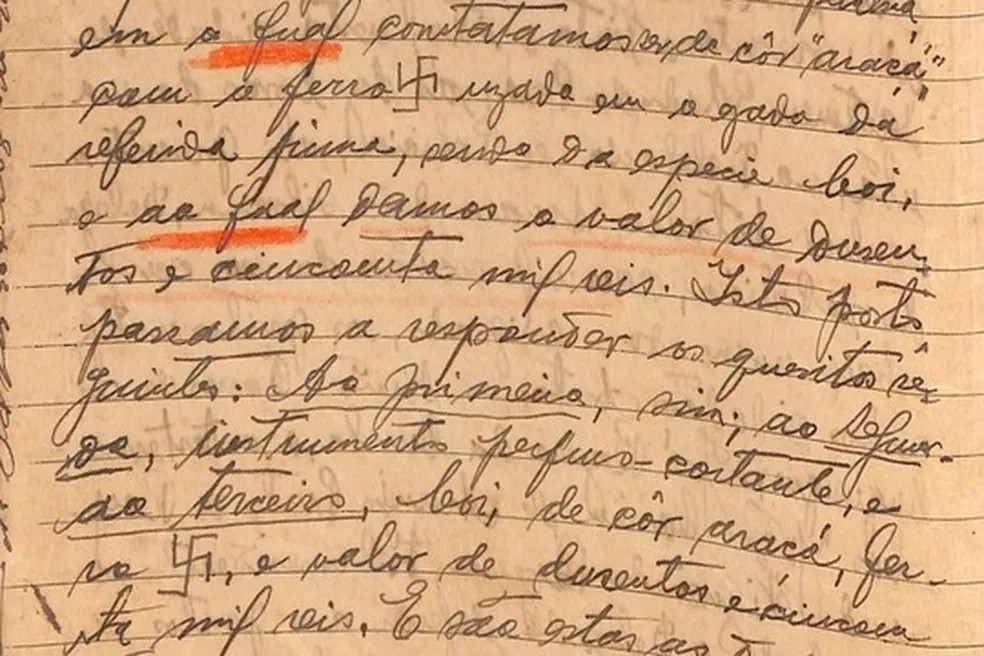 em o qual constatamos ser de côr "araçá,"
com o ferro 卐 uzado em o gado da
referida firma, sendo da especie boi,
e ao qual damos o valor de dusen-
tos e cincoenta mil reis. Isto posto
passamos a responder os quesitos se-
guintes: Ao primeiro, sim; ao segun-
do, instrumento perfuro-cortante, e
ao terceiro, boi, de côr araçá, fer-
ro 卐, e valor de dusentos e cincoen
ta mil reis. E são estas as